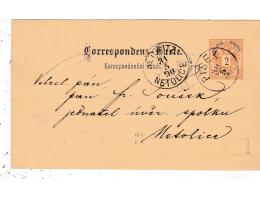 Correspondenz-Karte.
Korespondenční lístek.
2
NETOLICE
Velect. pán,
pan Fr. Soušek
jednatel úvěr. spolku
Netolice